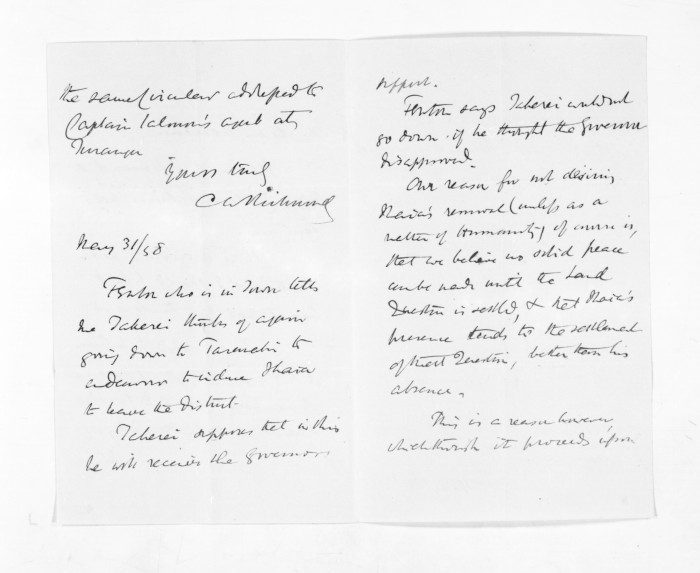 the same Circular addressed to
Captain Salmon's agent at
Turanga
Yours truly
C W Richmond
May 31/58
Fenton who is in Town tells
me Takerei thinks of again
going down to Taranaki to
endeavour to induce Ihaia
to leave the District.
Takerei supposes that in this
he will receive the Governors
support.
Fenton says Takerei would not
go down if he thought the Governor
disapproved.
Our reason for not desiring
Ihaia's removal (unless as a
matter of humanity) of course is,
that we believe no solid peace
can be made until the Land
Question is settled, & that Ihaia's
presence tends to the settlement
of that Question, better than his
absence.
This is a reason however
which though it proceeds upon